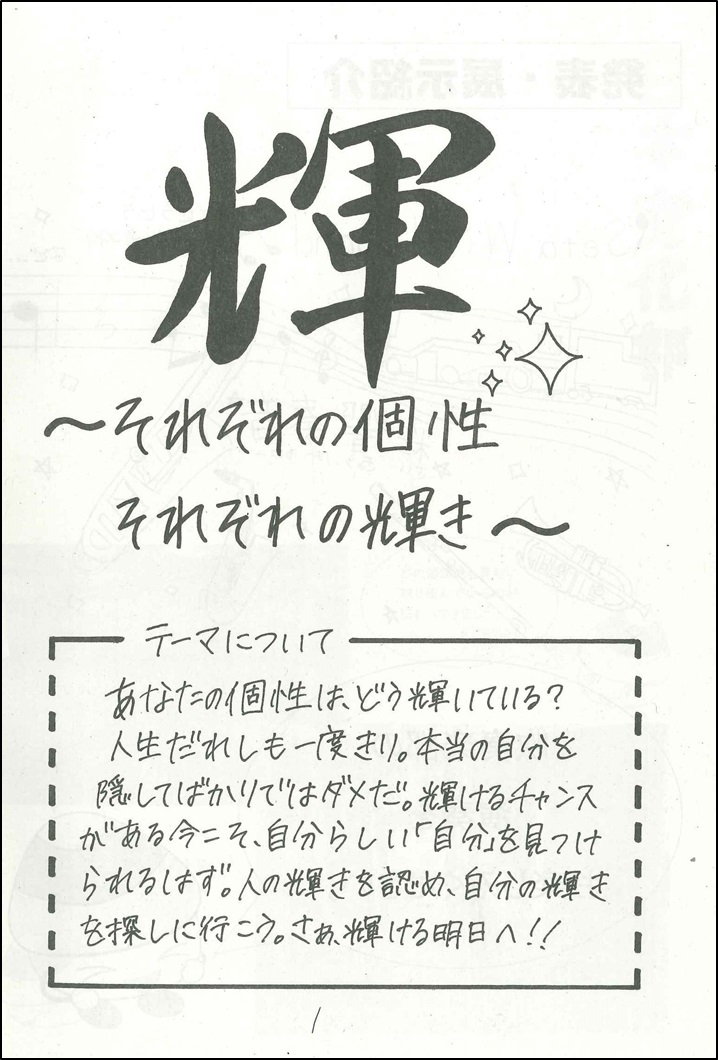 輝
～それぞれの個性
それぞれの輝き～
テーマについて
あなたの個性は、どう輝いている?
人生だれしも一度きり。本当の自分を
隠してばかりではダメだ。輝けるチャンス
がある今こそ、自分らしい「自分」を見つけ
られるはず。人の輝きを認め、自分の輝き
を探しに行こう。さぁ、輝ける明日へ!!
1
発表・展示紹介